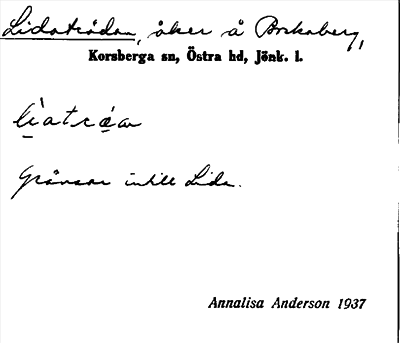 Lidaträdan, åker å Bockaberg,
Korsberga sn, Östra hd, Jönk. l.
Gränsar intill Lida.
Annalisa Anderson 1937